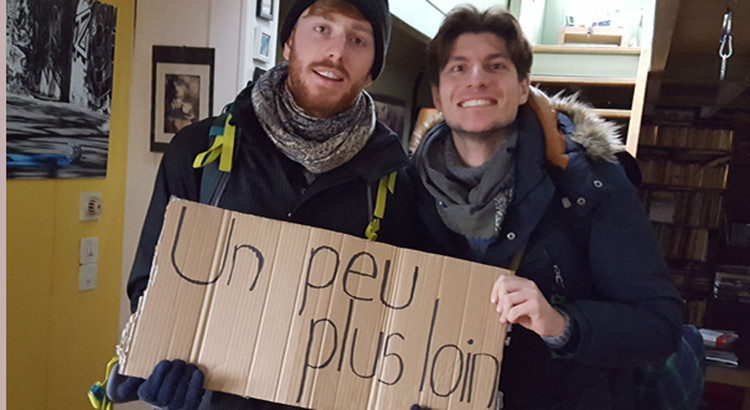 Un peu
plus loin